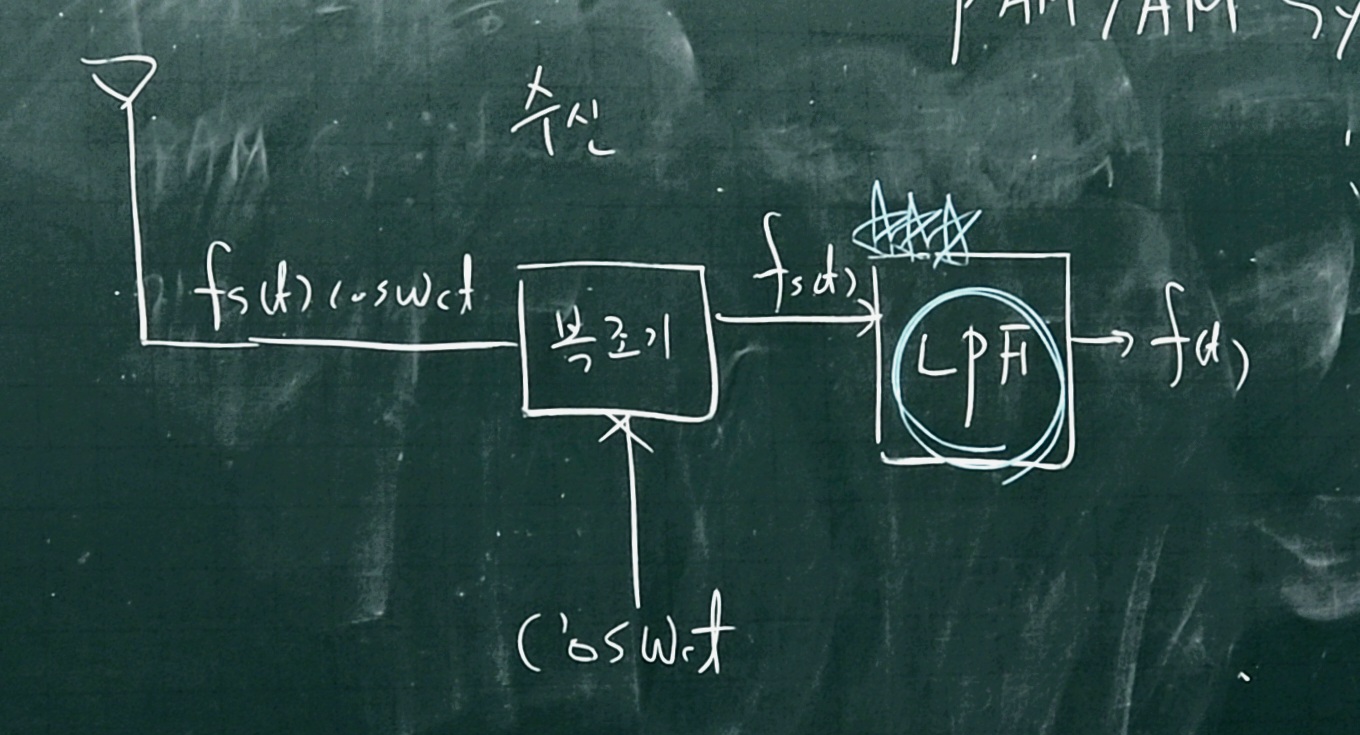 PAM/AM Sy
수신
fs(t) cosWct
복조기
fs(t)
LPF
f(t)
cosWct